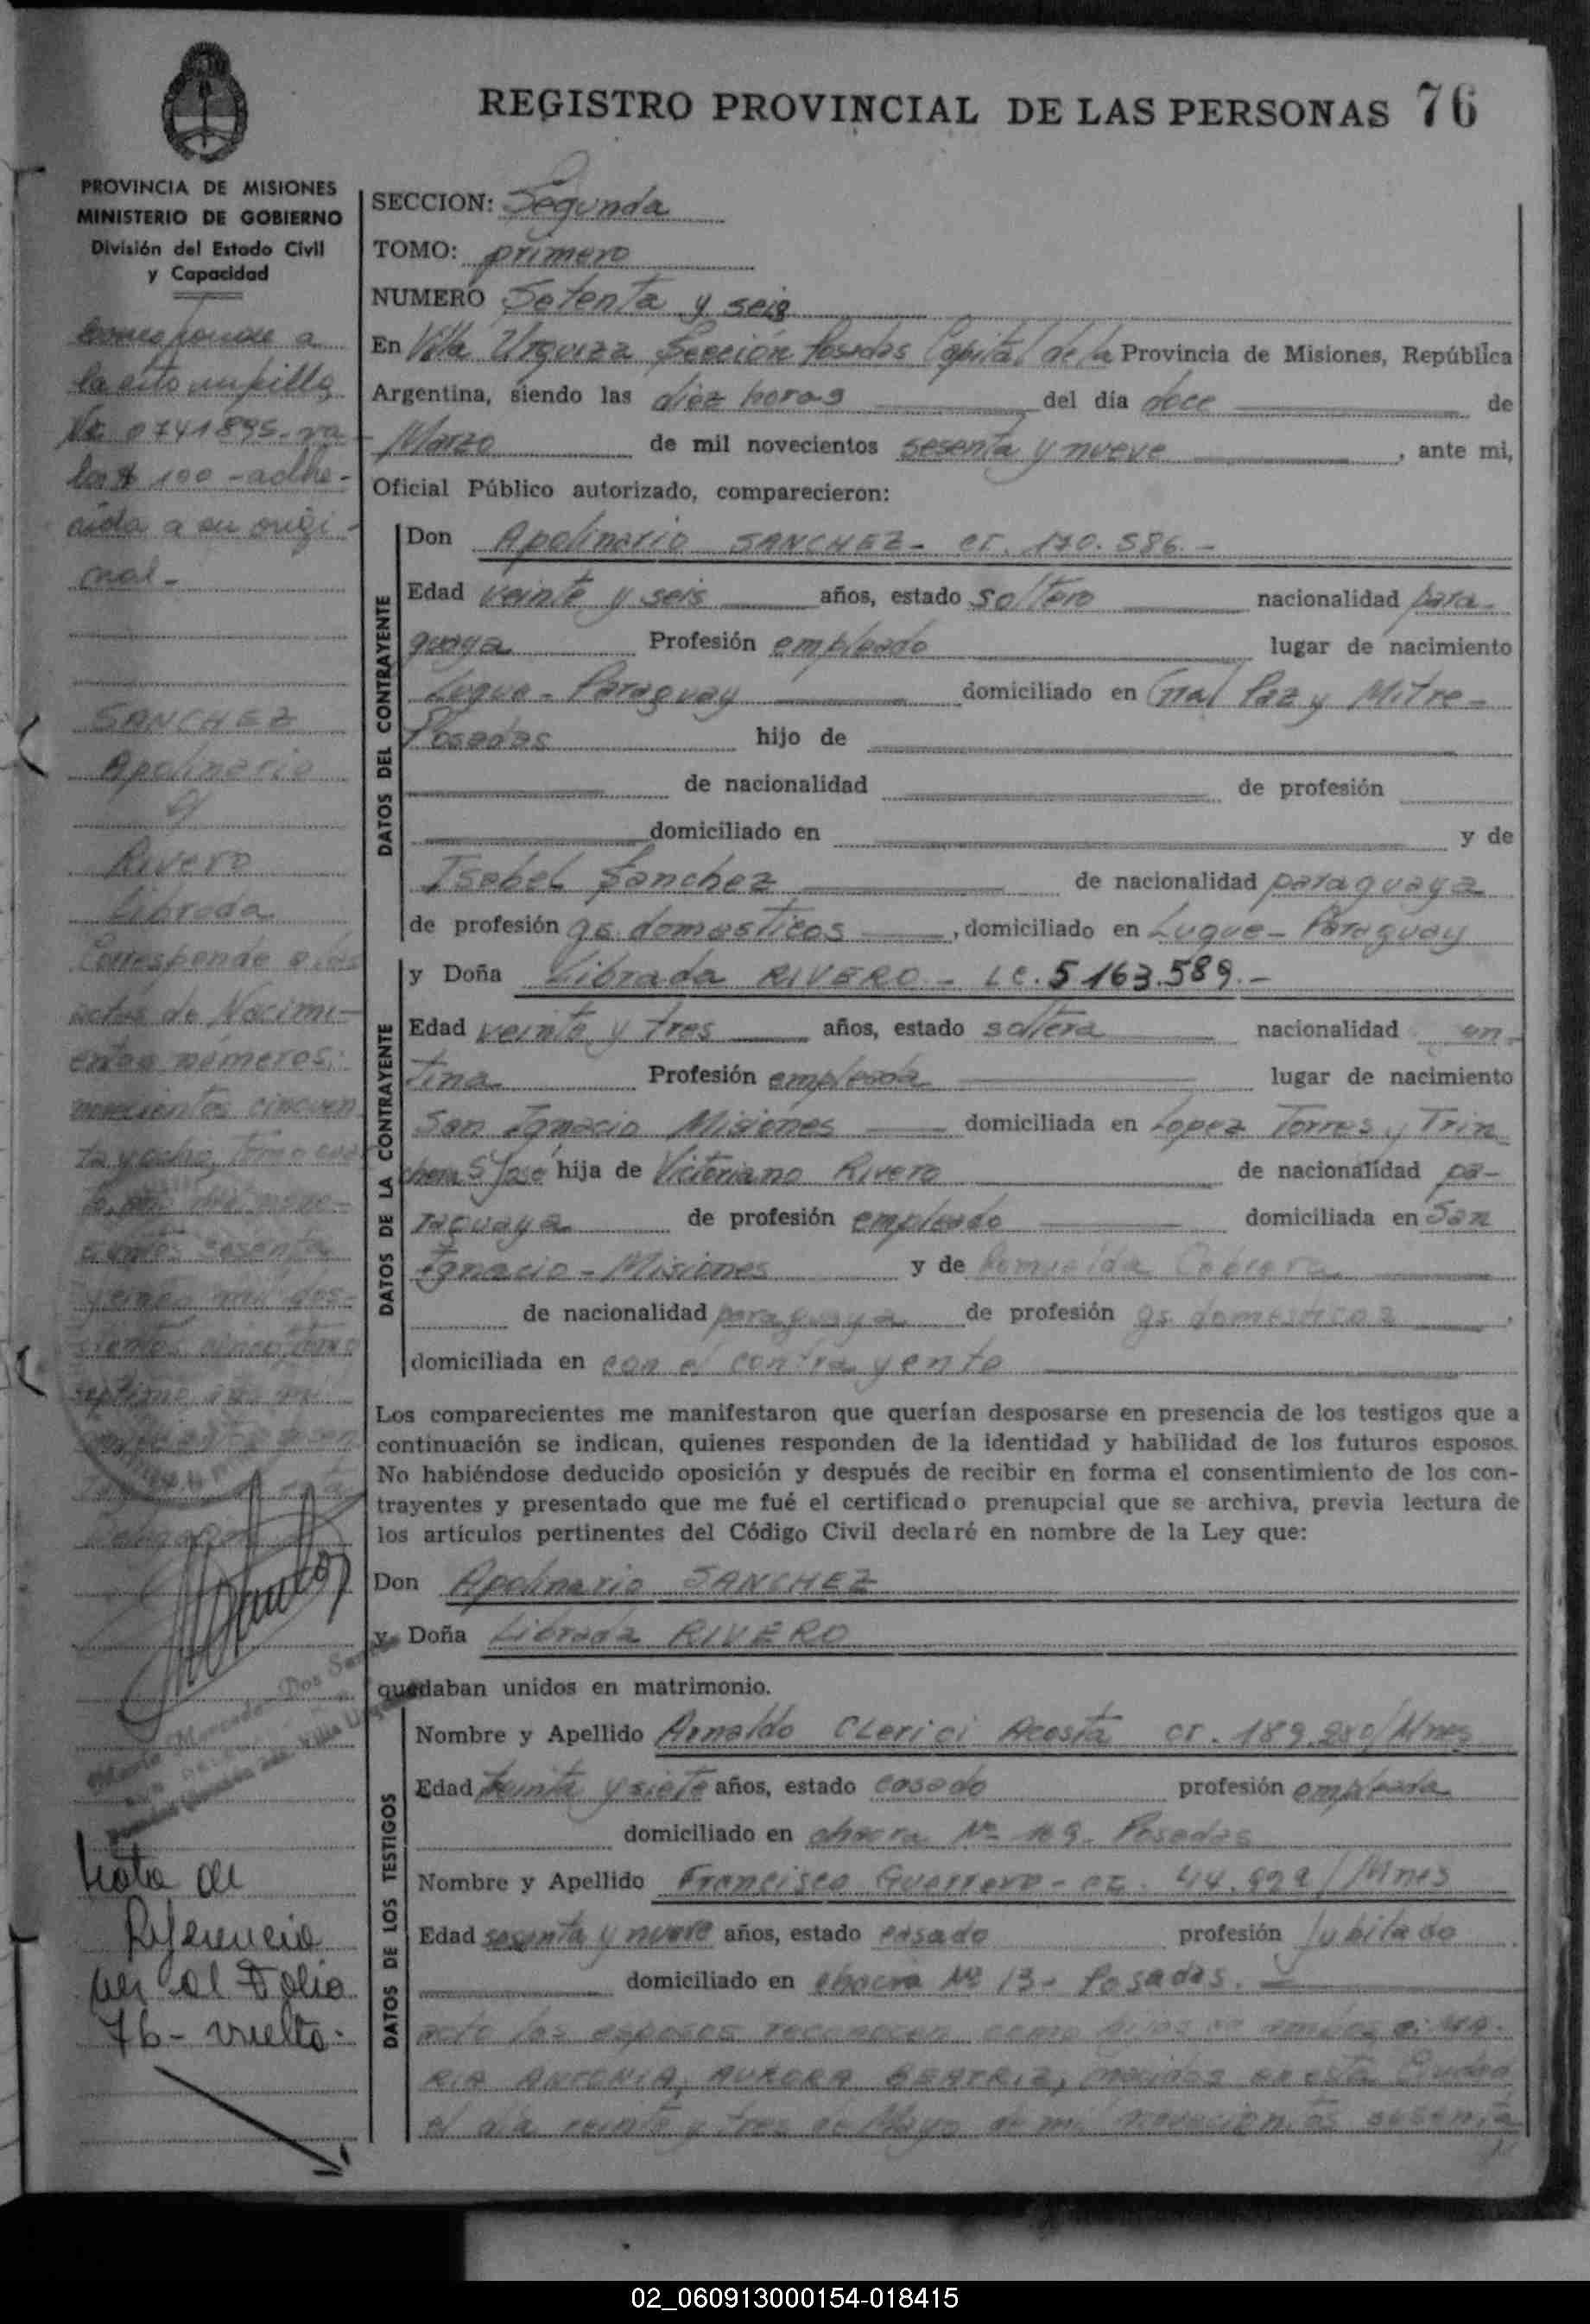 REGISTRO PROVINCIAL DE LAS PERSONAS 76
PROVINCIA DE MISIONES
MINISTERIO DE GOBIERNO
División del Estado Civil
y Capacidad
corresponde a
la estampilla
No 0741895- va-
lor $ 100 - adhe-
rida a su origi-
nal-
SANCHEZ
Apolinario
c/
Rivero
Librada
Corresponde a las
actas de Nacimi-
entos números:
novecientos cincuen
ta y ocho, tomo
septimo
Nota de
Referencia
ver al Folio
76- vuelto-
SECCION: Segunda
TOMO: primero
NUMERO Setenta y seis
En Villa Urquiza Sección Posadas Capital de la Provincia de Misiones, República
Argentina, siendo las diez horas del día doce de
Marzo de mil novecientos sesenta y nueve, ante mi,
Oficial Público autorizado, comparecieron:
DATOS DEL CONTRAYENTE
Don Apolinario SANCHEZ- CI. 170.586.-
Edad veinte y seis años, estado soltero nacionalidad para-
guaya Profesión empleado lugar de nacimiento
Luque- Paraguay domiciliado en Gral Paz y Mitre-
Posadas hijo de
de nacionalidad de profesión
domiciliado en y de
Isabel Sanchez de nacionalidad paraguaya
de profesión qs. domesticos, domiciliado en Luque- Paraguay
DATOS DE LA CONTRAYENTE
y Doña Librada RIVERO- LC. 5163.589.-
Edad veinte y tres años, estado soltera nacionalidad
tina Profesión empleada lugar de nacimiento
San Ignacio Misiones domiciliada en Lopez Torres y Trin
chera S José hija de Victoriano Rivero de nacionalidad pa-
raguaya de profesión empleado domiciliada en San
Ignacio - Misiones y de Romualda Cabrera
de nacionalidad paraguaya de profesión qs domesticos,
domiciliada en con el contrayente
Los comparecientes me manifestaron que querían desposarse en presencia de los testigos que a
continuación se indican, quienes responden de la identidad y habilidad de los futuros esposos.
No habiéndose deducido oposición y después de recibir en forma el consentimiento de los con-
trayentes y presentado que me fué el certificado prenupcial que se archiva, previa lectura de
los artículos pertinentes del Código Civil declaré en nombre de la Ley que:
Don Apolinario SANCHEZ
y Doña Librada RIVERO
quedaban unidos en matrimonio.
DATOS DE LOS TESTIGOS
Nombre y Apellido Arnaldo CLerici Acosta CI. 189.280/Mnes
Edad treinta y siete años, estado casado profesión empleado
domiciliado en chacra No 169- Posadas
Nombre y Apellido Francisco Guerrero- CI. 44.929/Mnes
Edad sesenta y nueve años, estado casado profesión Jubilado
domiciliado en chacra No 13- Posadas.
acto los esposos reconocen como hijos de ambos a: MA-
RIA ANTONIA, AURORA BEATRIZ, nacidas en esta Ciudad
el día veinte y tres de Mayo de mil novecientos sesenta
02_060913000154-018415